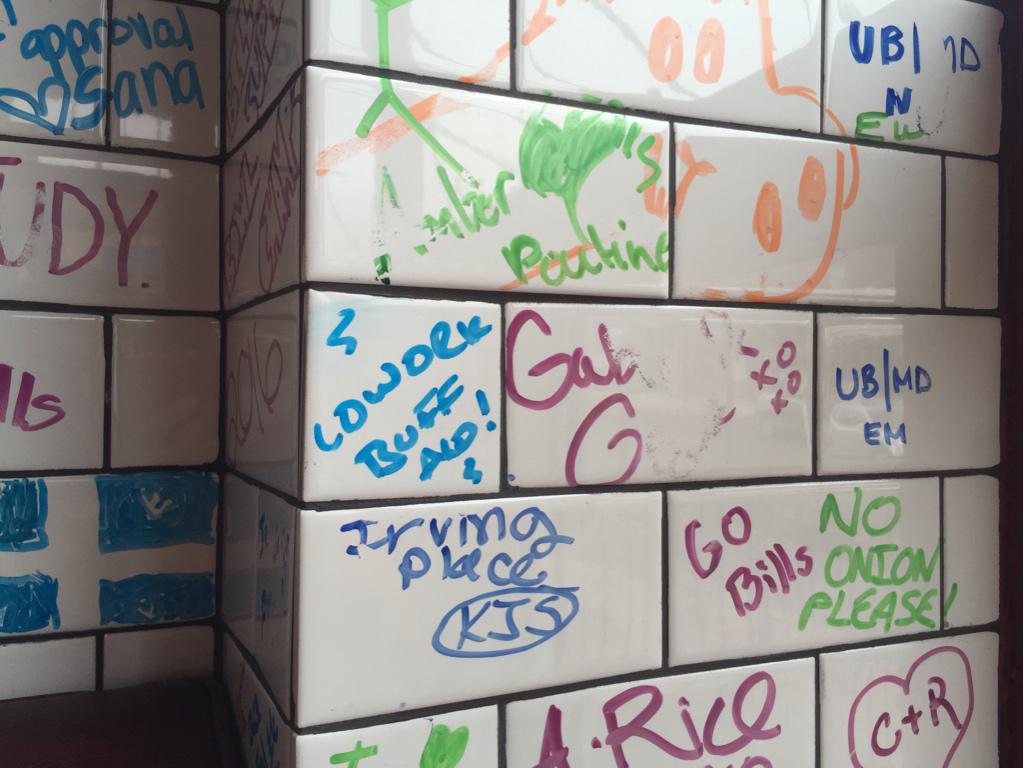 approval
Sana
UDY.
lls
UB|
N
Amber's
Poutine
COWORK
BUFF
ALO!
Gal
G
xo
xo
UB/MD
EM
Irving
place
KJS
GO
Bills
NO
ONION
PLEASE!
I
A. Rice
C+R